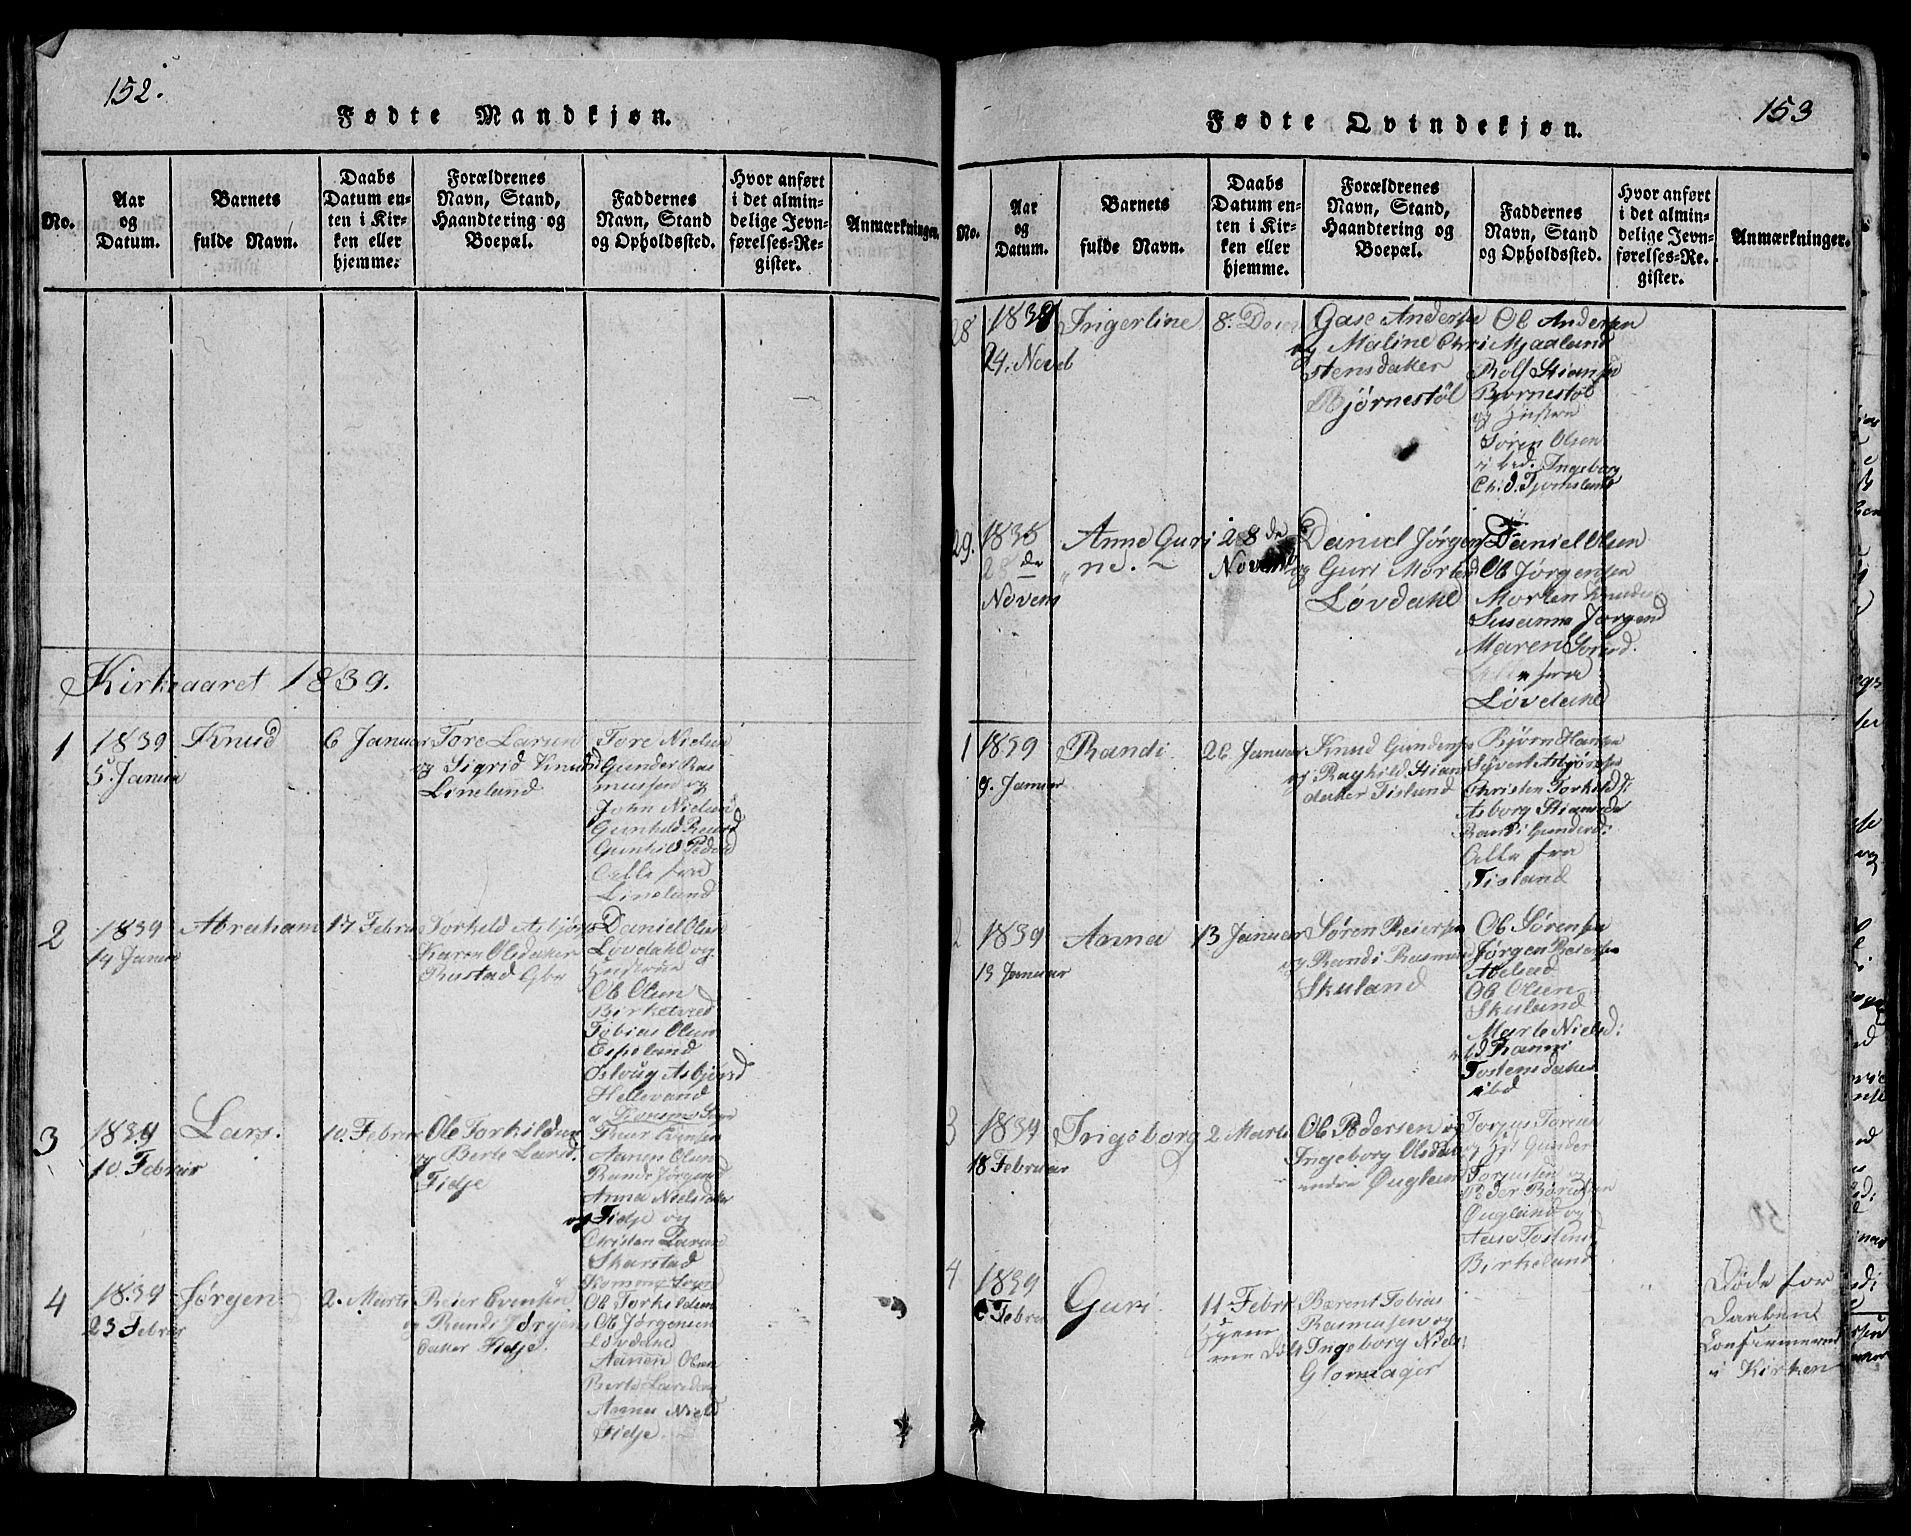 152.
Fødte Mandkjøn.
No.
Aar
og
Datum.
Barnets
fulde Navn.
Daabs
Datum en-
ten i Kir-
ken eller
hjemme.
Forældrenes
Navn, Stand,
Haandtering og
Boepæl.
Faddernes
Navn, Stand
og Opholdssted.
Hvor anført
i det almin-
delige Jevn-
førelses-Re-
gister.
Anmærkninger.
Kirkeaaret 1839.
1
1839
5. Januar
Knud
6 Januar
Tore Larsen
og Sigrid Knudsd
Lineland
Tore Nielsen
Gunder Ras
mussen og
John Nielsen
Gunhild
Gunhild Pedersd
Alle fra
Lineland
2
1839
14 Januar
Abraham
17 Februar
Torkeld Asbjørns
Karen Olsdatter
Rustad
Daniel Olsen
Løvdahl og
Hustrue
Ole Olsen
Birketved
Tobias Olsen
Espeland
Oslaug Asbjørsd
Hellevand
3
1839
10 Februar
Lars.
10. Februar
Ole Torkildsen
og Berte Larsd.
Fidje
Evensen
Aanen Olsen
Randi Jørgensd
Anna Nielsdatter
og Fidje og
Christen Larsen
Skarstad
4
1839
23 Februar
Jørgen
2. Marts
Reier Evensen
og Randi Jørgens
datter Fidje.
Ole Torkildsen
Ole Jørgensen
Løvdahl
Aanen Olsen
Berte Larsdr
Anna Nielsd
Fidje.
153
Fødte Qvindekjøn.
No.
Aar
og
Datum.
Barnets
fulde Navn.
Daabs
Datum en-
ten i Kir-
ken eller
hjemme.
Forældrenes
Navn, Stand,
Haandtering og
Boepæl.
Faddernes
Navn, Stand
og Opholdssted.
Hvor anført
i det almin-
delige Jevn-
førelses-Re-
gister.
Anmærkninger.
28
1838
24. Noveb
Ingerline
8.
Gase Anderse
og Maline Chri
stensdatter
Bjørnestøl
Ole Andersen
Mjaaland
Rolf Stianse
Bjørnestøl
og Hustru
Søren Olsen
ibid. Ingeborg
Ch. d. Tjomsland
29.
1838
28 de
Novem
Anne Guri
ne.
28 de
Novemb
Daniel Jørgens
og Guri Mortensd
Løvdahl
Daniel Olsen
Ole Jørgensen
Morten Knuds
Susanna Jørgensd
Maren
Alle fra
Løvdahl
1
1839
9. Januar
Randi
26 Januar
Knud Gunders
og Raghild Stians
datter Tisland
Bjørn Hanse
Syvert Asbjørnse
Christen Torkilds:
Asborg Stiansdr
Randi Gundersd:
Alle fra
Tisland
2
1839
13 Januar
Anna
13 Januar
Søren Reierse
og Randi Rasmusd
Skuland
Ole Sørense
Jørgen Reierse
Ole Olsen
Skuland
Marte Nielsd:
ibd
Tostensdatter
ibd
3
1839
18 Februar
Ingeborg
2 Marts
Ole Pedersen og
Ingeborg Olsdatter
Øugland
Torjus Toresen
og Gunder
Torjusen og
Peder
Øugland og
Aase Tostensd
Birkeland
4
1839
6 Februar
Guri
11 Februar
Hjeme
Bærent Tobias
Rasmusen og
Ingeborg Niels:
Glomsager
Døde før
Daaben
Confirmeret
i Kirken